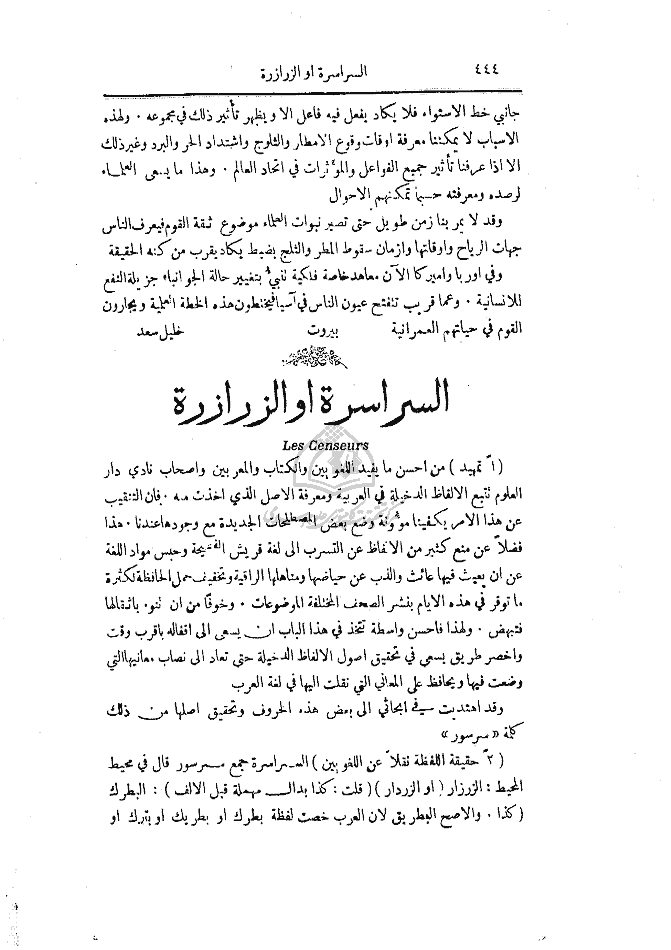 ٤٤٤
السراسرة او الزرازرة
جانبي خط الاستواء فلا يكاد يفعل فيه فاعل الا ويظهر تأثير ذلك في مجموعه ٠ ولهذه
الاسباب لا يمكننا معرفة اوقات وقوع الامطار والثلوج واشتداد الحر والبرد وغير ذلك
الا اذا عرفنا تأثير جميع الفواعل والمؤثرات في اتحاد العالم ٠ وهذا ما يسعى العلماء
لرصده ومعرفته حسبما تمكنهم الاحوال
وقد لا يمر بنا زمن طويل حتى تصير نبوات العلماء موضوع ثقة القوم فيعرف الناس
جهات الرياح واوقاتها وازمان سقوط المطر والثلج بضبط يكاد يقرب من كنه الحقيقة
وفي اوربا واميركا الآن معاهد خاصة فلكية تنبيء بتغيير حالة الجو انباء جزيلة النفع
للانسانية ٠ وعما قريب تنفتح عيون الناس في آسيا فيخنطون هذه الخطة العلمية ويجارون
القوم في حياتهم العمرانية بيروت خليل سعد
السراسرة او الزرازرة
Les Censeurs
( ١ً تمهيد ) من احسن ما يفيد اللغويين والكتاب والمعربين واصحاب نادي دار
العلوم تتبع الالفاظ الدخيلة في العربية ومعرفة الاصل الذي اخذت منه ٠ فان التنقيب
عن هذا الامر يكفينا مؤونة وضع بعض المصطلحات الجديدة مع وجودها عندنا ٠ هذا
فضلاً عن منع كثير من الالفاظ عن التسرب الى لغة قريش الفصيحة وحبس مواد اللغة
عن ان يعيث فيها عائث والذب عن حياضها ومناهلها الراقية وتخفيف حمل الحافظة لكثرة
ما توفر في هذه الايام بنشر الصحف المختلفة الموضوعات ٠ وخوفًا من ان تنوء باثقالها
فتبهض ٠ ولهذا فاحسن واسطة تتخذ في هذا الباب ان يسعى الى اقفاله باقرب وقت
واخصر طريق يسعى في تحقيق اصول الالفاظ الدخيلة حتى تعاد الى نصاب معانيها التي
وضعت فيها ويحافظ على المعاني التي نقلت اليها في لغة العرب
وقد اهتديت في ابحاثي الى بعض هذه الحروف وتحقيق اصلها من ذلك
كلمة « سرسور »
( ٢ً حقيقة اللفظة نقلاً عن اللغويين ) السراسرة جمع سرسور قال في محيط
المحيط : الزرزار ( او الزردار ) ( قلت : كذا بدال مهملة قبل الالف ) : البطرك
( كذا ٠ والاصح البطريق لان العرب خصت لفظة بطرك او بطريك او بترك او